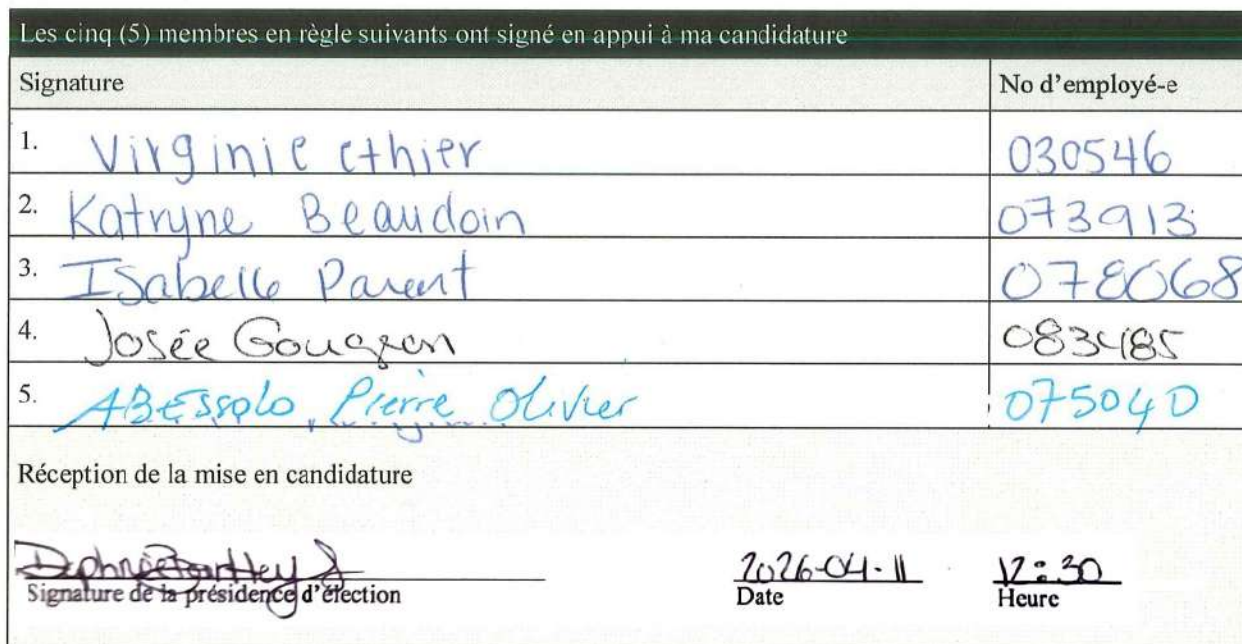 Les cinq (5) membres en règle suivants ont signé en appui à ma candidature
Signature No d'employé-e
1. Virginie ethier 030546
2. Katryne Beaudoin 073913
3. Isabelle Parent 078068
4. Josée Gougeon 083485
5. ABESSOLO, Pierre Olivier 075040
Réception de la mise en candidature
2026-04-11 12:30
Signature de la présidence d'élection Date Heure